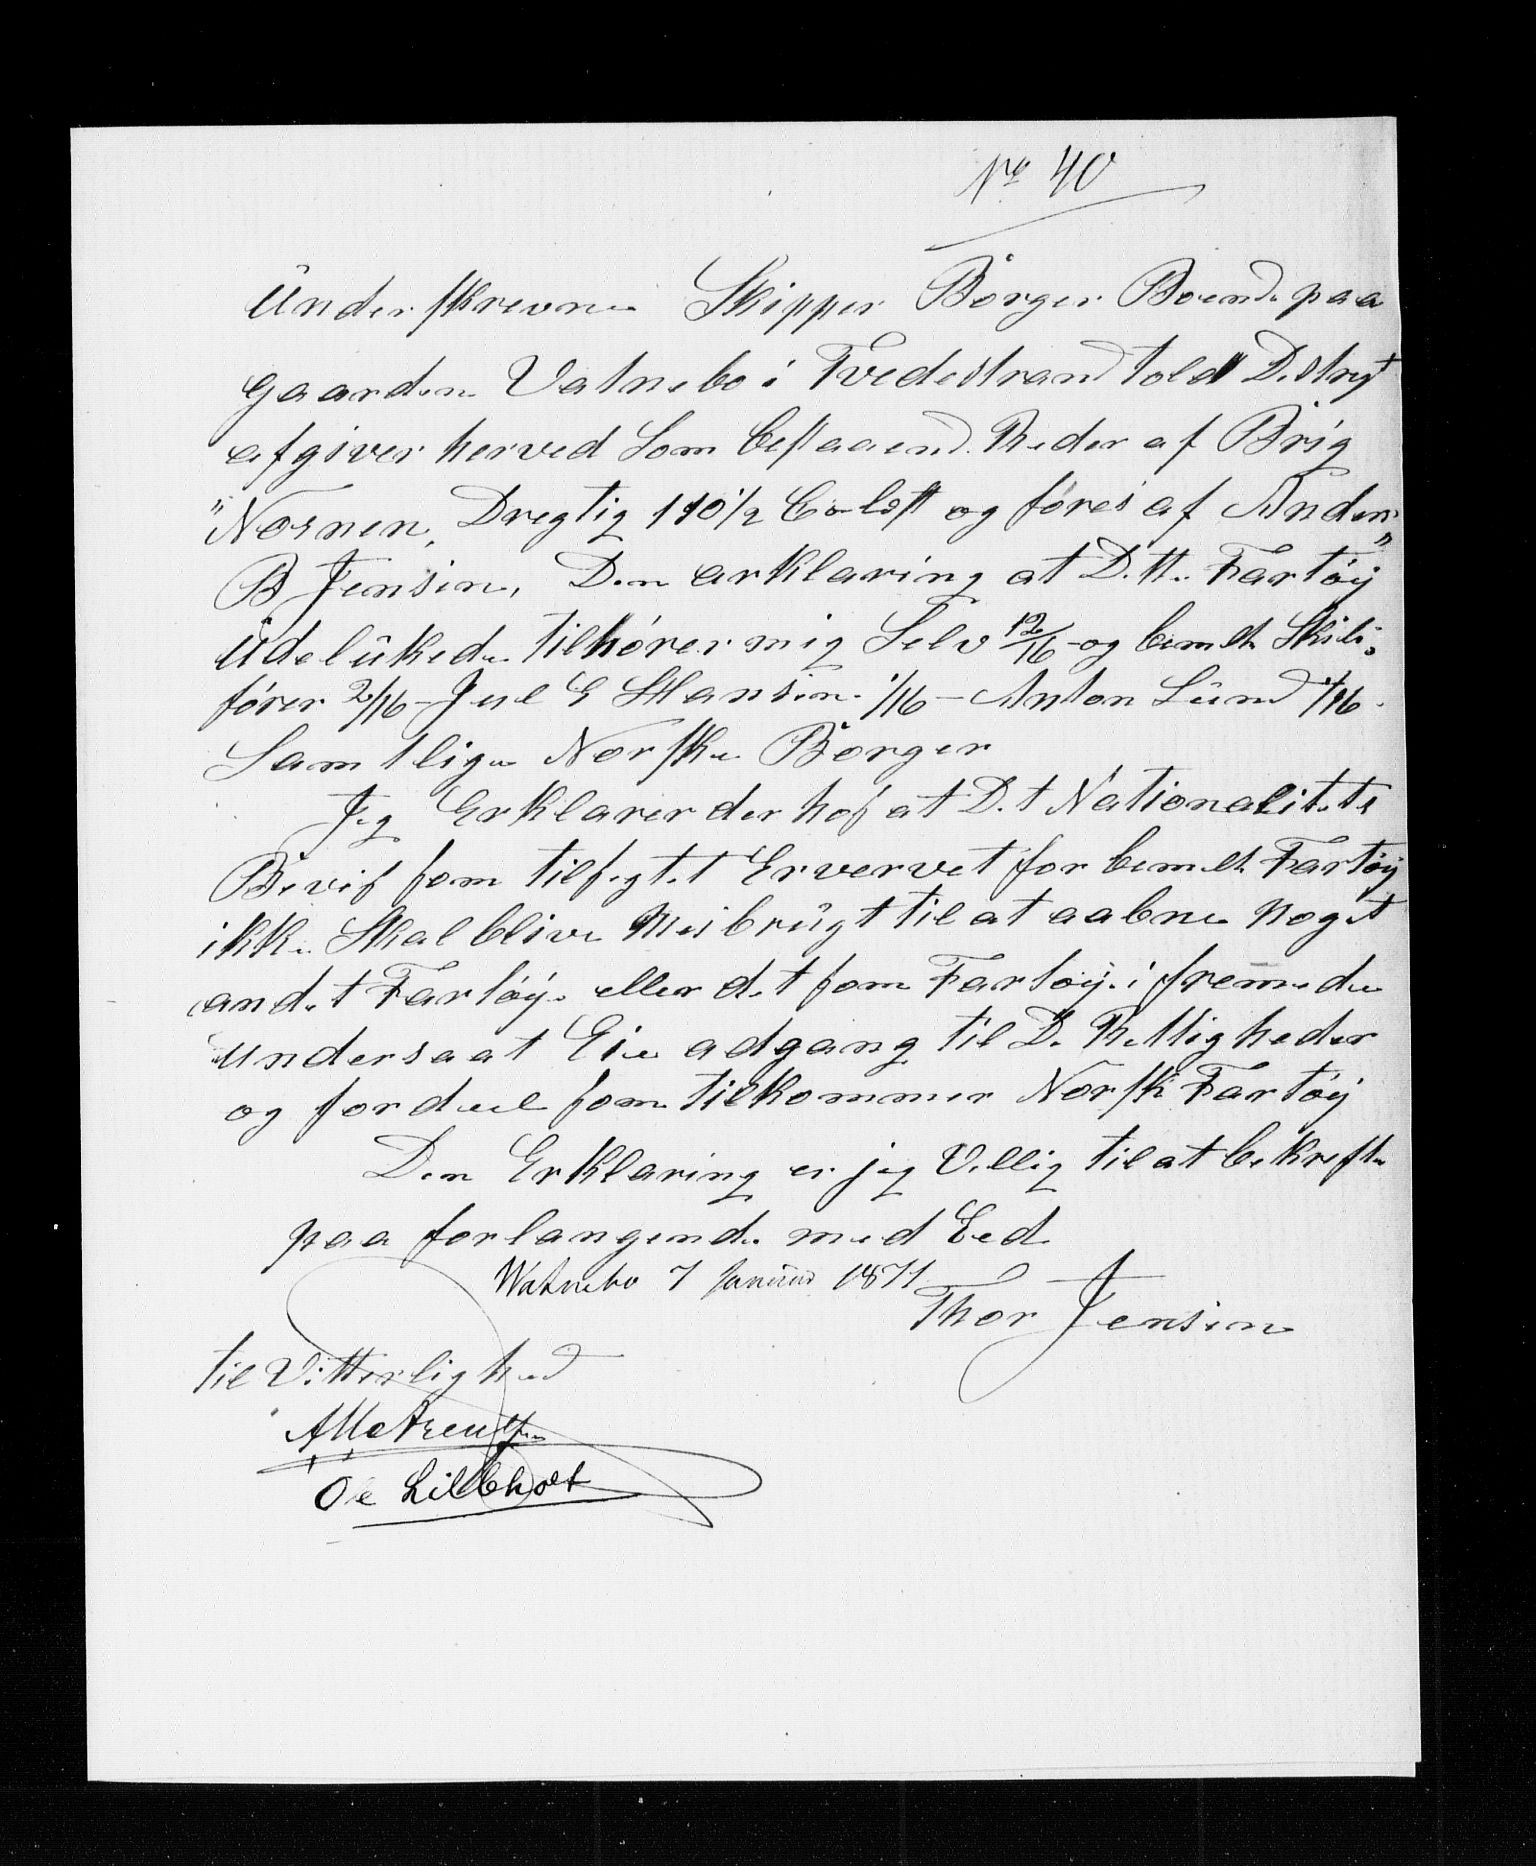 No 40
Underskrevne Skipper Borger Boende paa
gaarden Vatnebo i Tvedestrand told Distrigt
afgiver herved Som bestaaende Reder af Brig
"Nornen, Dregtig 110 1/2 Co-lest og føres af Anders
B Jensen, Den arklaring at Dette Fartøy
Udelukede tilhører mig Selv 12/16 og bemelte Skibs
fører 2/16 - Jul G Hansen 1/16 - Anton Lund 1/16
Samtlige Norske Borger
Jeg Erklarer der hos at Det Nationalitets
Bevis som tilsegtet Ervervet for bemelte Fartøy
ikke Skal blive Misbrugt til at aabne noget
andet Fartøye eller det som Fartøye i fremede
undersaat Eie adgang til De Rettigheder
og fordeel som tilkommer Norsk Fartøy
Den Erklaring er jeg Villig til at bekrefte
paa forlangende med Eed
Watnebo 7 Januar 1871
Thor Jensen
til Vitterlighed
Ole Lilleholt